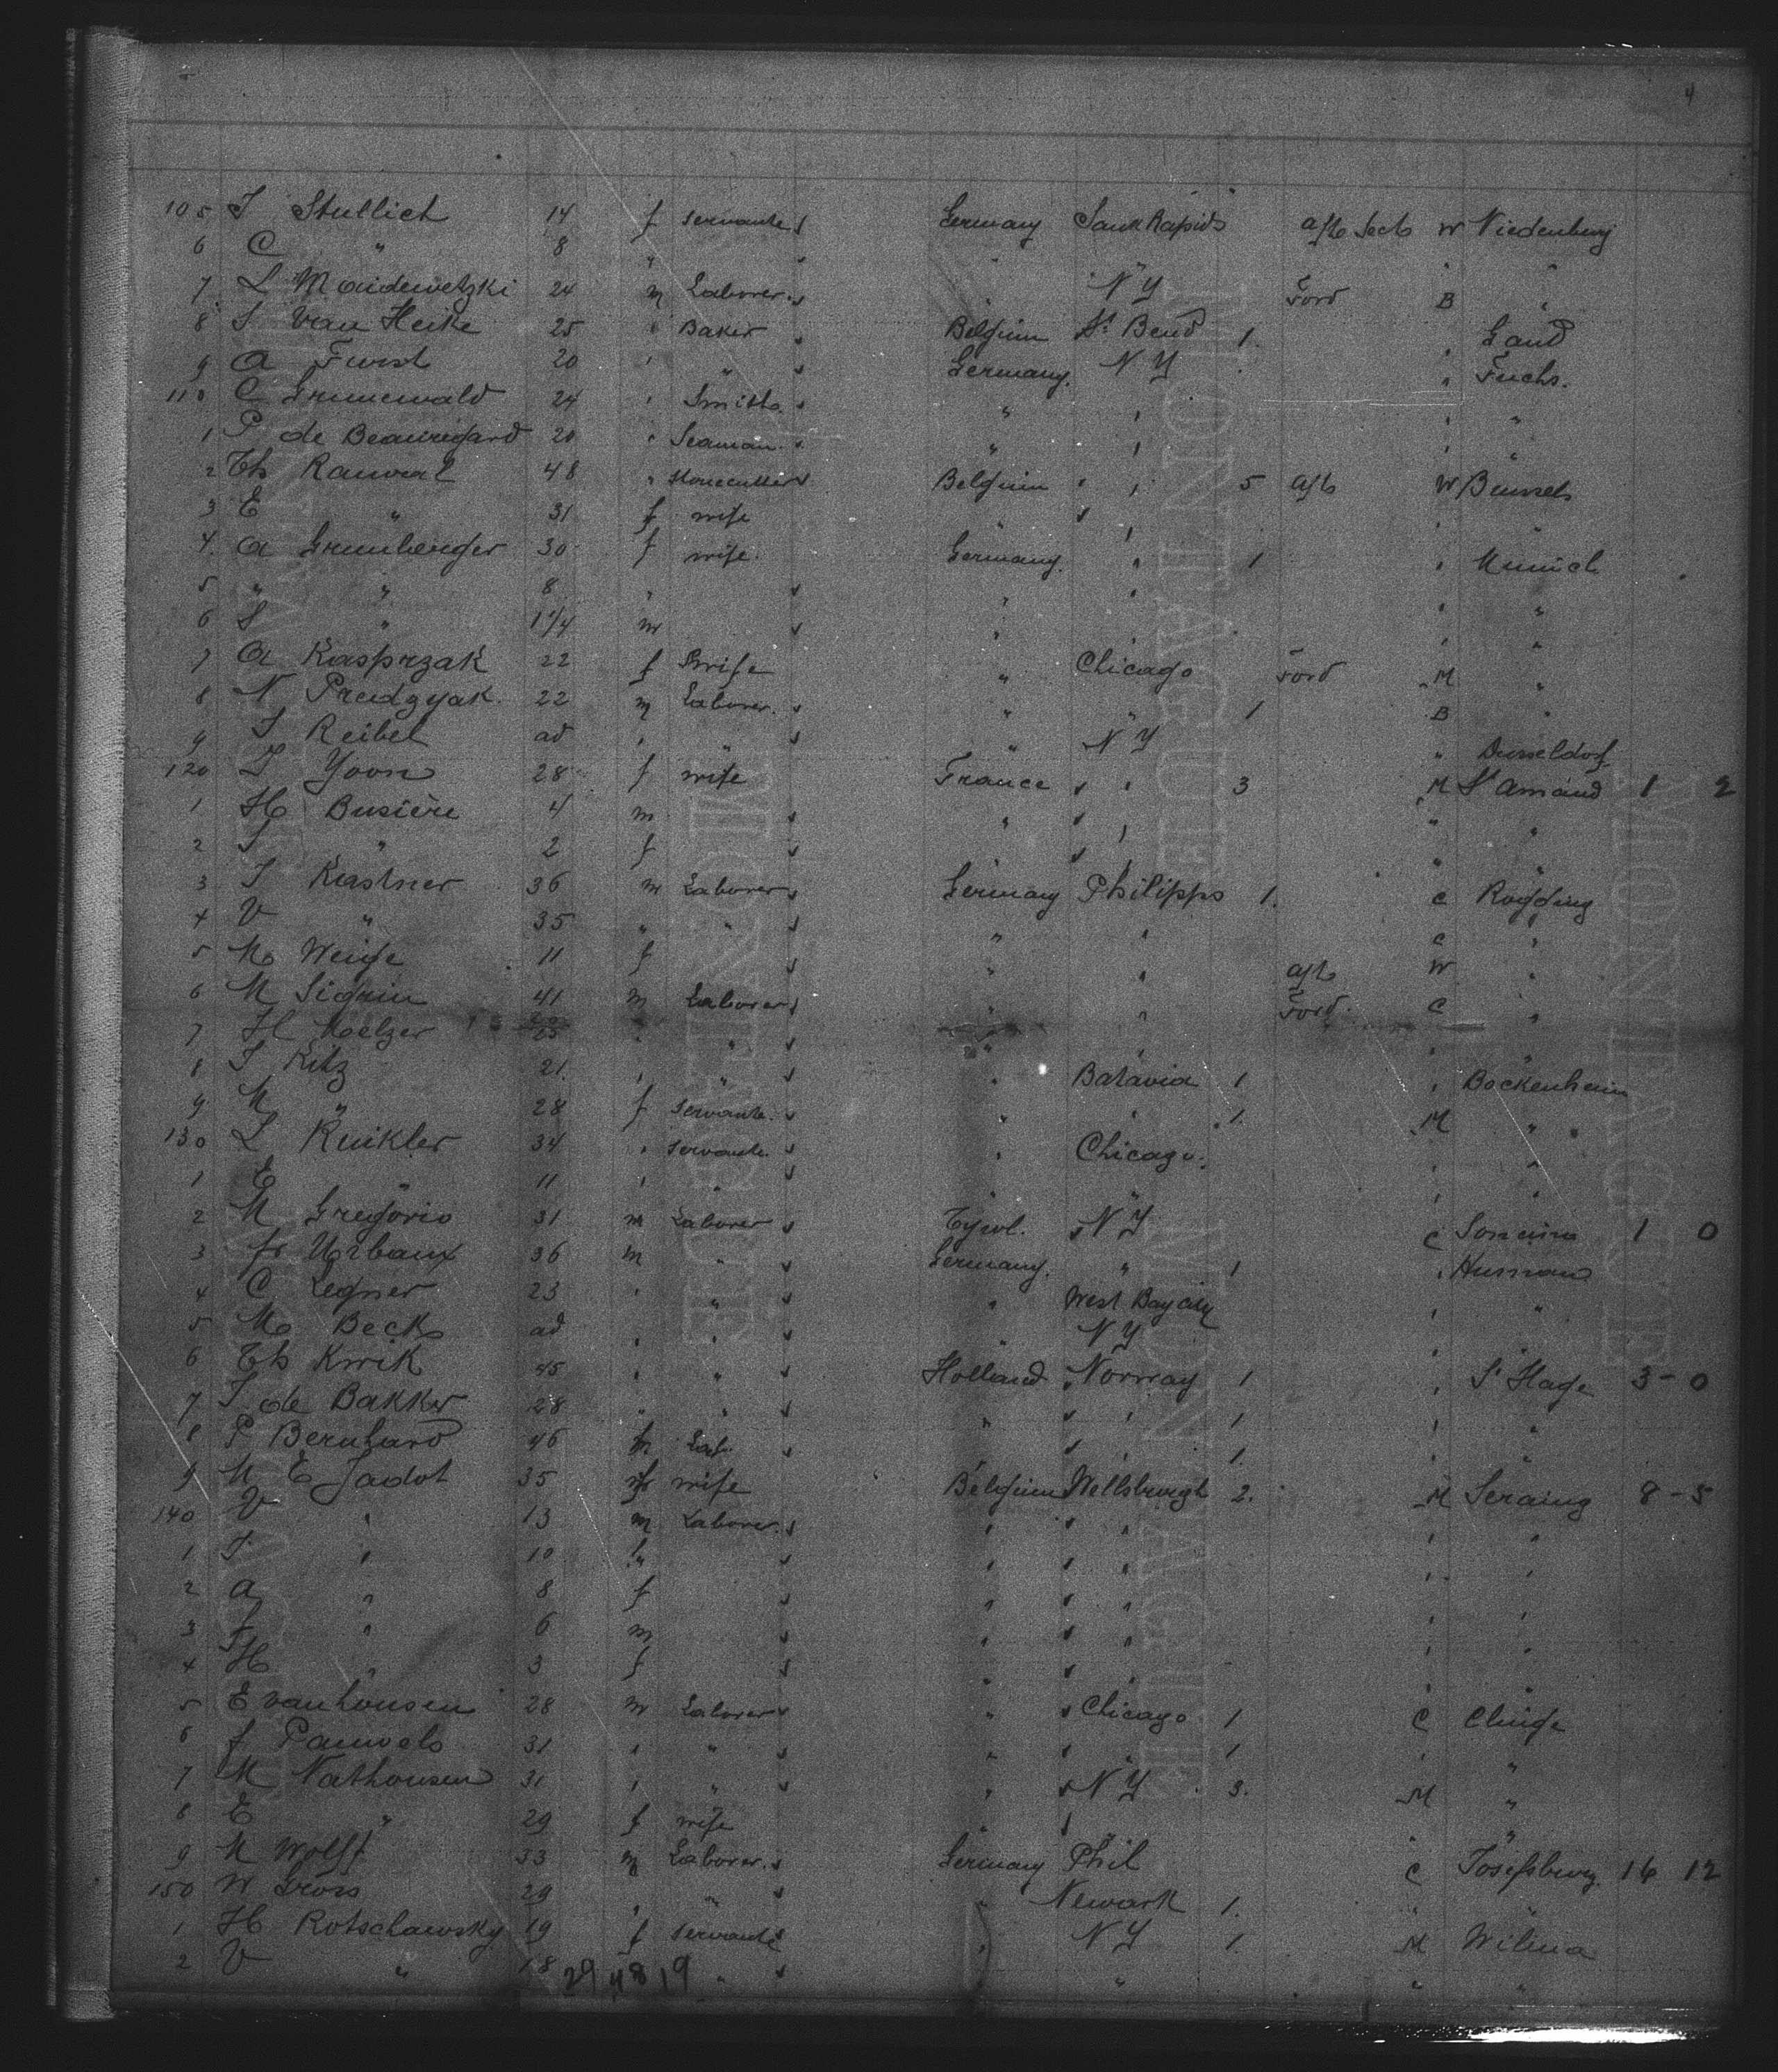 4
105 J Stullich 14 f servante s Germany Sauk Rapids aft Sect W Niedenburg
6 C " 8 " s " " "
7 L 24 m Laborer s " NY Ford B "
8 S van Heike 25 " Baker s Belgium St Bend 1. " Gand
9 A Furst 20 " " s Germany. NY " Fuchs.
110 C Grunewald 24 " Smith s " " " "
1 P de Beauregard 20 " Seaman s " " " "
2 Th 48 " Stonecutter Belgium s " 5 aft W Brussels
3 E " 31 f wife " s " " "
4. A Grunberger 30 f wife. Germany. " 1 " Munich
5 " " 8 " s " " " "
6 S " 1 1/4 m s " " " "
7 A Kasprzak 22 f wife " Chicago Ford M "
8 N 22 m Laborer. s " " 1 B "
9 J Reibel ad " " s " NY " Dusseldorf
120 Yoon 28 f wife France s " 3 M St Amand 1 2
1 H Busière 4 m s " s " " "
2 J " 2 f s " s " " "
3 J Kastner 36 m Laborer s Germany Philipps 1. C
4 V " 35 " " s " " C "
5 M 11 f s " " aft W "
6 M 41 m Laborer s " " Ford. C "
7 H Melzer 25 " " s " " " "
8 J Ritz 21. " " s " Batavia 1 " Bockenheim
9 M " 28 f servante. s " " 1. M "
130 L 34 " servante. s " Chicago. " "
1 E " 11 " " s " " " "
2 M Gregorio 31 m Laborer s Tyrol. s NY C 1 0
3 Fr Urbaux 36 m " s Germany. " 1 "
4 C Legner 23 " " s " West Bay City " "
5 M Beck ad " " s " NY "
6 Th Kwik 45 " " s Holland Norway 1 " S' Hage 3 - 0
7 J de Bakker 28 " " s " s " 1 " "
8 P Bernhard 46 m Lab. s " s " 1. " "
9 M E Jadot 35 f wife Belgium Wellsburgh 2. M Seraing 8 - 5
140 V " 13 m Laborer. s " s " " "
1 J " 10 " s " s " " "
2 A " 8 f s " s " " "
3 J " 6 m s " s " " "
4 H " 3 f s " s " " "
5 E vanhousen 28 m Laborer s " s Chicago 1 C Clinge
6 f Pauwels 31 " " s " s " 1 " "
7 M Nathousen 31 " " s " s NY 3. M "
8 E " 29 f wife " s " " "
9 M Wolff 33 m Laborer. s Germany Phil C Josefsburg. 16 12
150 W Gross 29 " " s " Newark 1. " "
1 H Rotschawsky 19 f servante s " NY 1. M Wilna
2 V " 18 " s " " " "
29 48 19